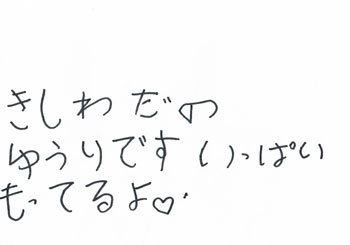 きしわだの
ゆうりです いっぱい
もってるよ♡.